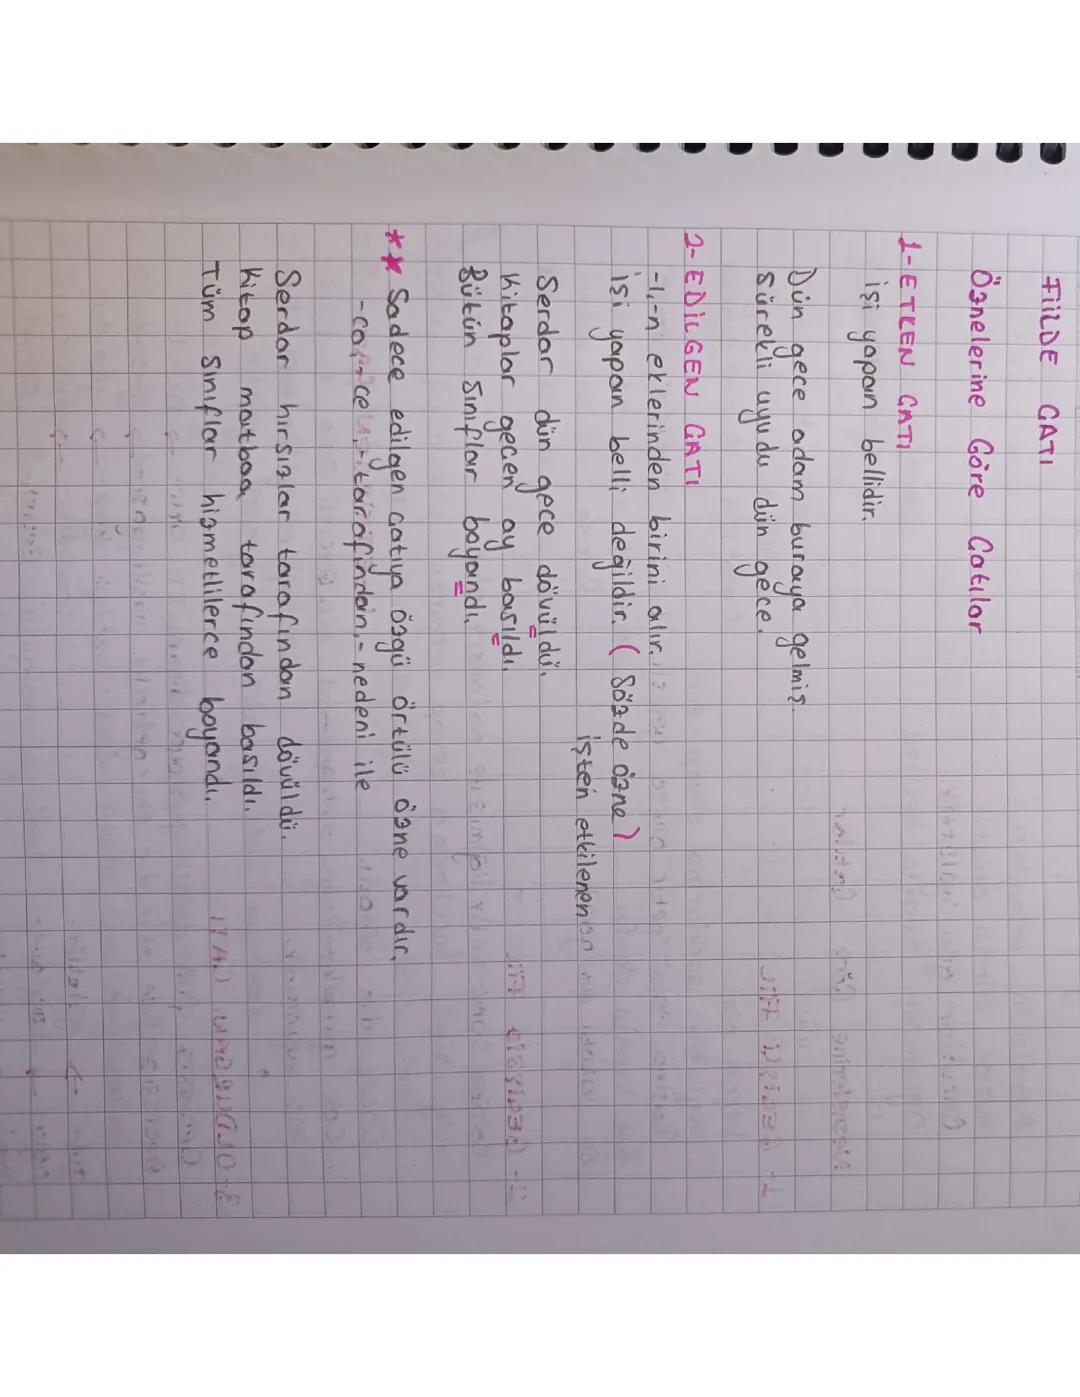 FİİLDE ÇATI
Öznelerine Göre Çatılar
1-ETKEN ÇATI
işi yapan bellidir.
Dün gece adam buraya gelmiş.
Sürekli uyudu dün gece.
2- EDİLGEN ÇATI
-l,-n eklerinden birini alır.
işi yapan belli değildir. (Sözde özne)
işten etkilenen
Serdar dün gece dövüldü.
Kitaplar geçen ay basıldı.
Bütün sınıflar boyandı.
** Sadece edilgen çatıya özgü örtülü özne vardır.
-ca, -ce, -tarafından, -nedeni ile
Serdar hırsızlar tarafından dövüldü.
Kitap matbaa tarafından basıldı.
Tüm sınıflar hizmetlilerce boyandı.